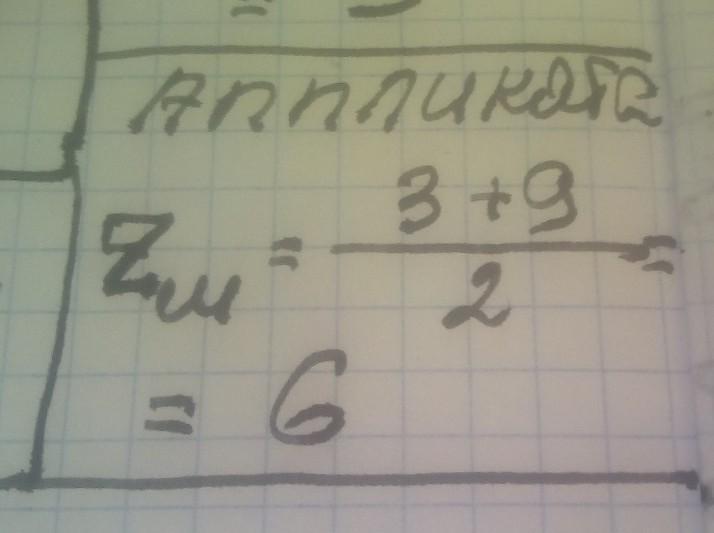 Аппликата
Zм = 3 + 9 / 2 =
= 6